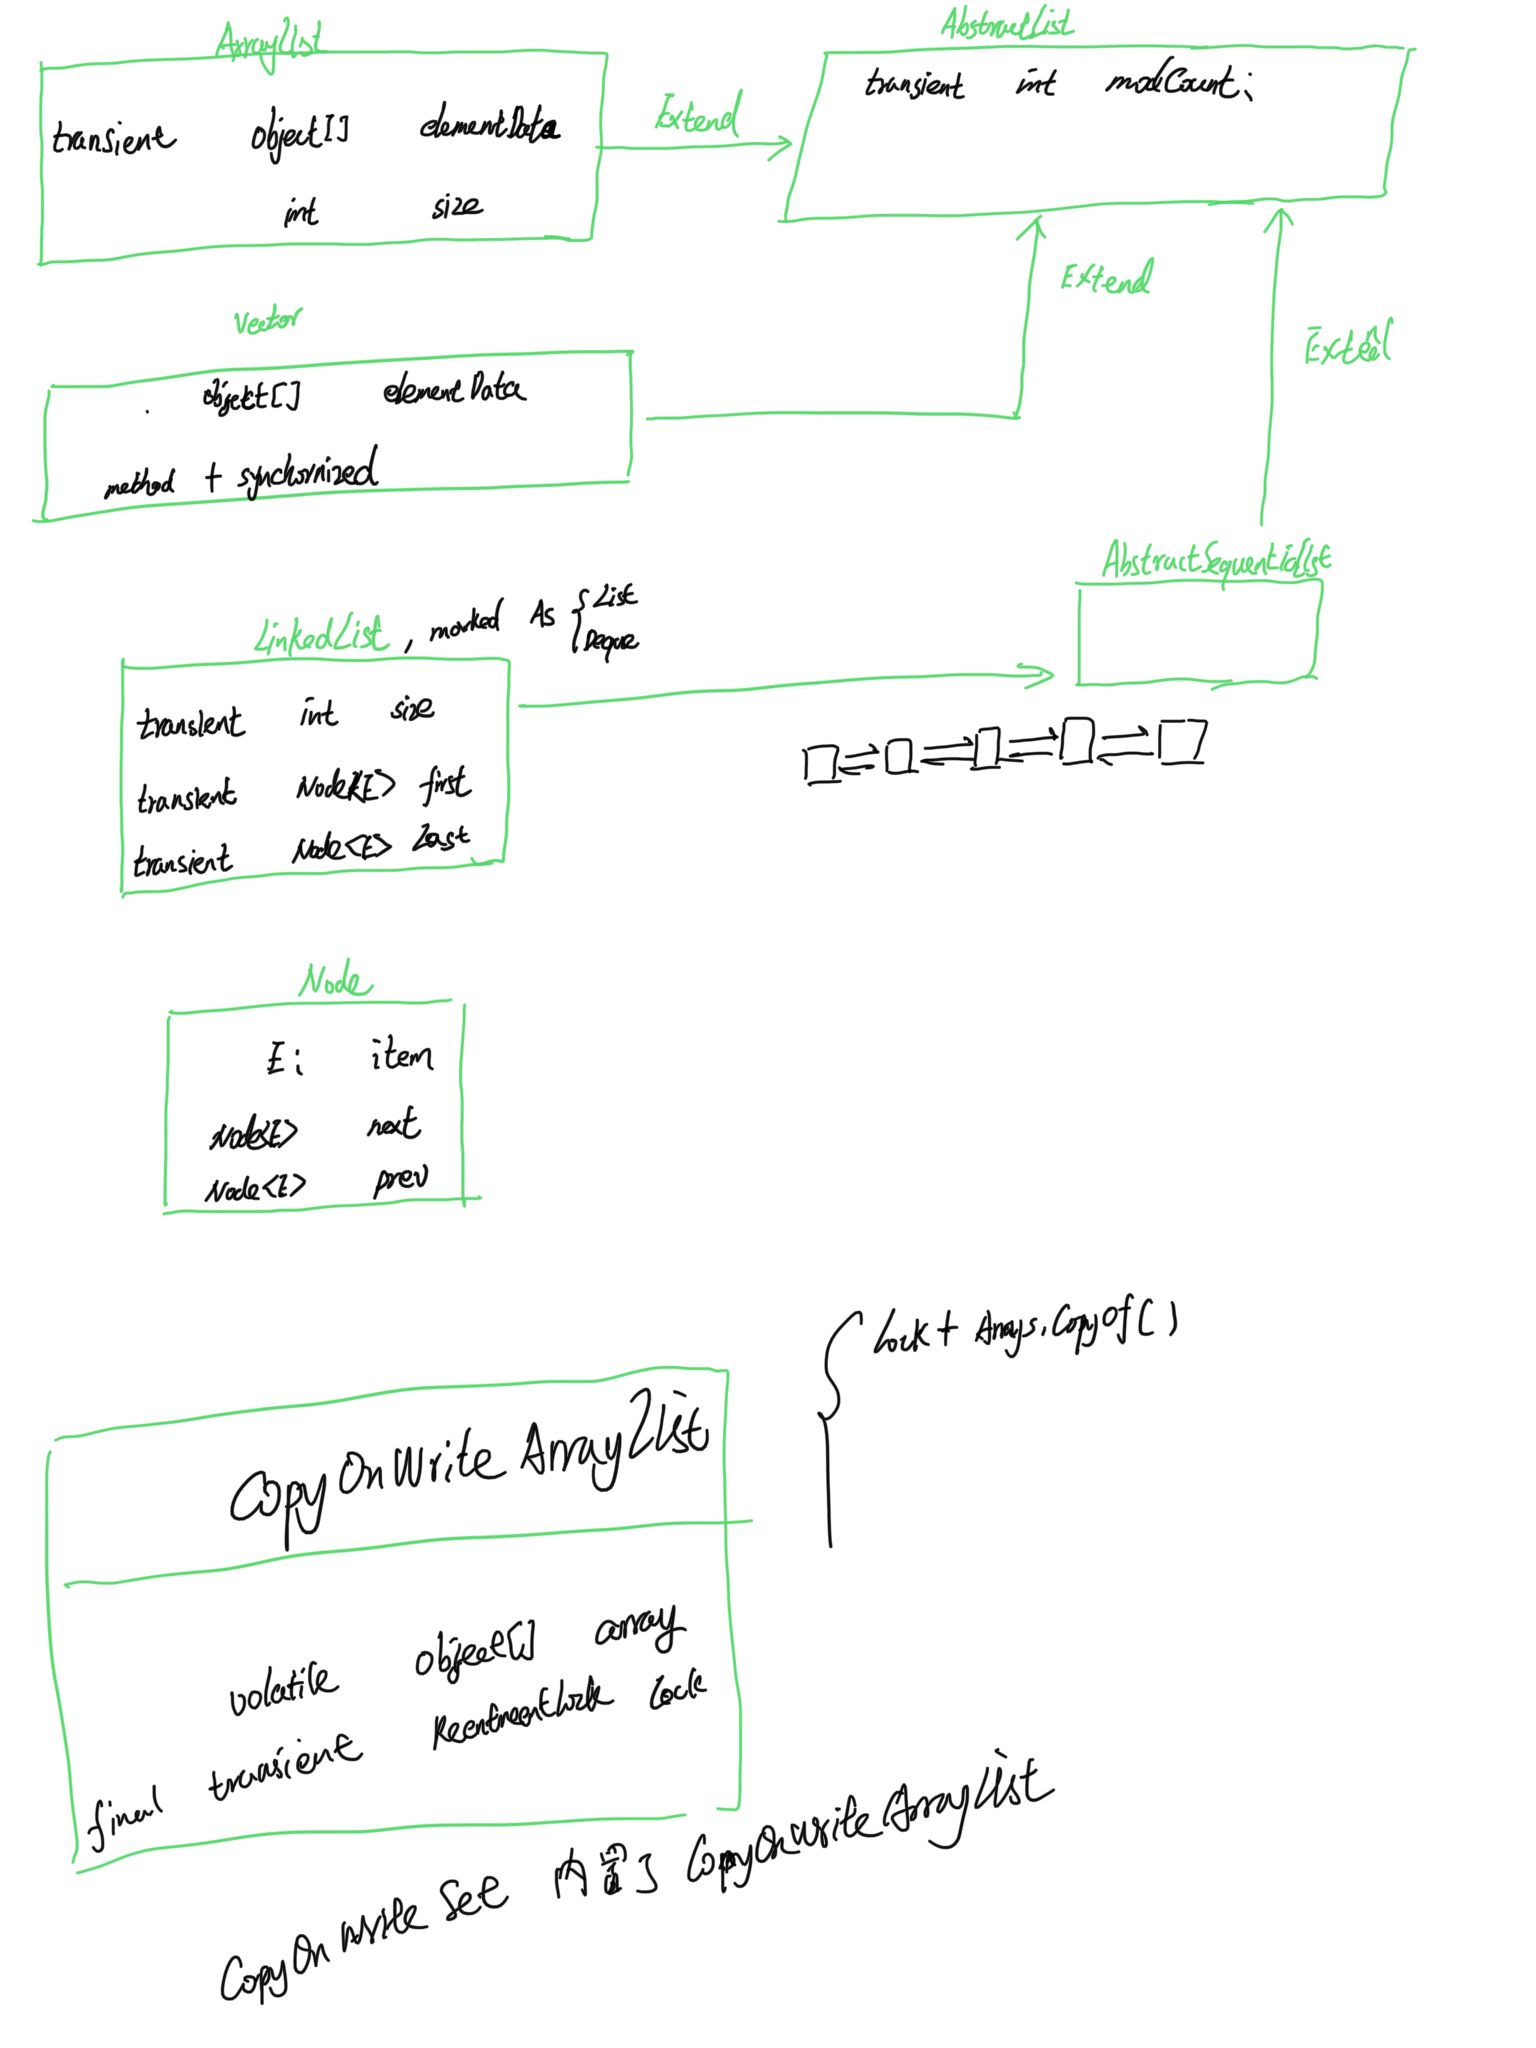 ArrayList
transient object[] elementData
int size
Extend
AbstractList
transient int modCount;
Vector
object[] elementData
method + synchornized
Extend
Extend
AbstractSequentialList
LinkedList, marked As { List
Deque
transient int size
transient Node<E> first
transient Node<E> last
Node
E; item
Node<E> next
Node<E> prev
Lock + Arrays.CopyOf()
CopyOnWriteArrayList
volatile object[] array
final transient ReentrentLock lock
CopyOnWriteSet 内置了 CopyOnWriteArrayList